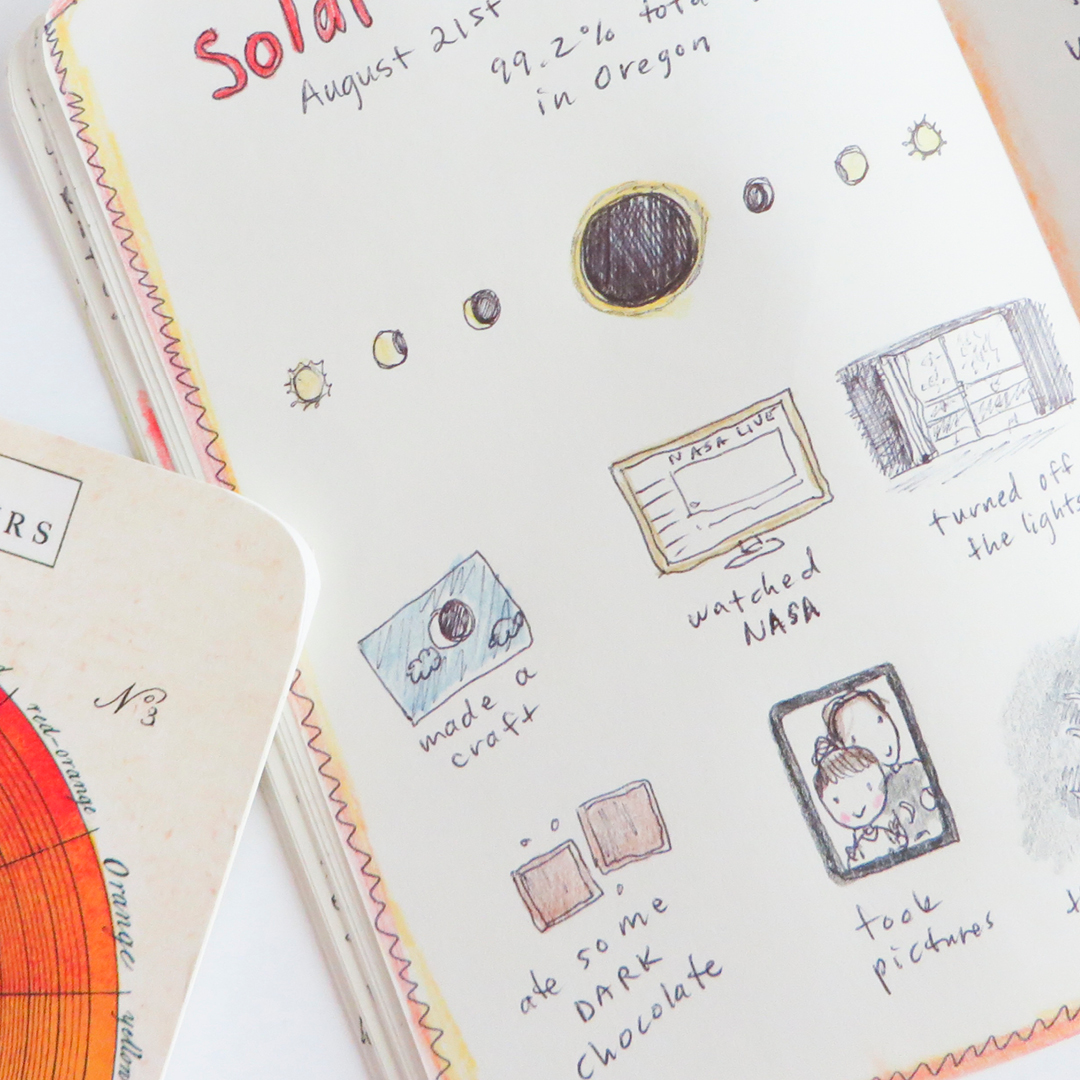 Solar
August 21st
99.2% total
in Oregon
NASA LIVE
turned off
the lights
watched
NASA
made a
craft
took
pictures
ate some
DARK
chocolate
RS
Nº3
red-orange
Orange
yellow